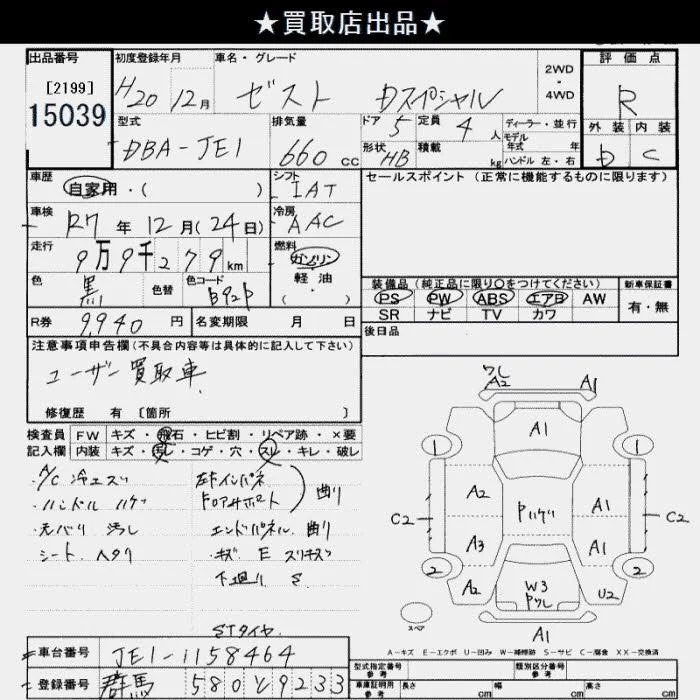 ★買取店出品★
出品番号 初度登録年月 車名・グレード 評価点
[2199] H20 12月 ゼスト Dスペシャル 2WD・4WD R
15039 型式 排気量 ドア 5 定員 4人 ディーラー・並行 外装 内装
DBA-JE1 660cc 形状 HB 積載 kg モデル年式 年 ハンドル 左・右 D C
車歴 自家用・( ) シフト IAT セールスポイント (正常に機能するものに限ります)
車検 R7年 12月(24日) 冷房 AAC
走行 9万9千279km 燃料 ガソリン
色 黒 色替 色コード B92P 軽油・( )
装備品 (純正品に限り○をつけてください) 新車保証書
PS PW ABS エアB AW 有・無
SR ナビ TV カワ
R券 9,940円 名変期限 月 日 後日品
注意事項申告欄(不具合内容等は具体的に記入して下さい)
ユーザー買取車
修復歴 有 [箇所 ]
検査員 FW キズ・飛石・ヒビ割・リペア跡・×要
記入欄 内装 キズ・汚レ・コゲ・穴・スレ・キレ・破レ
A/C 冷エズ 左F インパネ
ハンドル ハゲ ドロアサポート 曲り
天バリ 汚レ エンドパネル 曲り
シート ヘタリ キズ E スリキズ
下廻り S
STタイヤ
ワレ
A2 A1
A1
1 1
A2 Pハゲ A1
C2 C2
A3 A1
2 2
A2 W3 Pワレ U2
A1
スペア
A-キズ E-エクボ U-凹み W-補修跡 S-サビ C-腐食 XX-交換済
車台番号 JE1-1158464 型式指定番号 参考 類別区分番号 参考
登録番号 群馬 580 9233 車庫証明用 参考 長さ cm 幅 cm 高さ cm